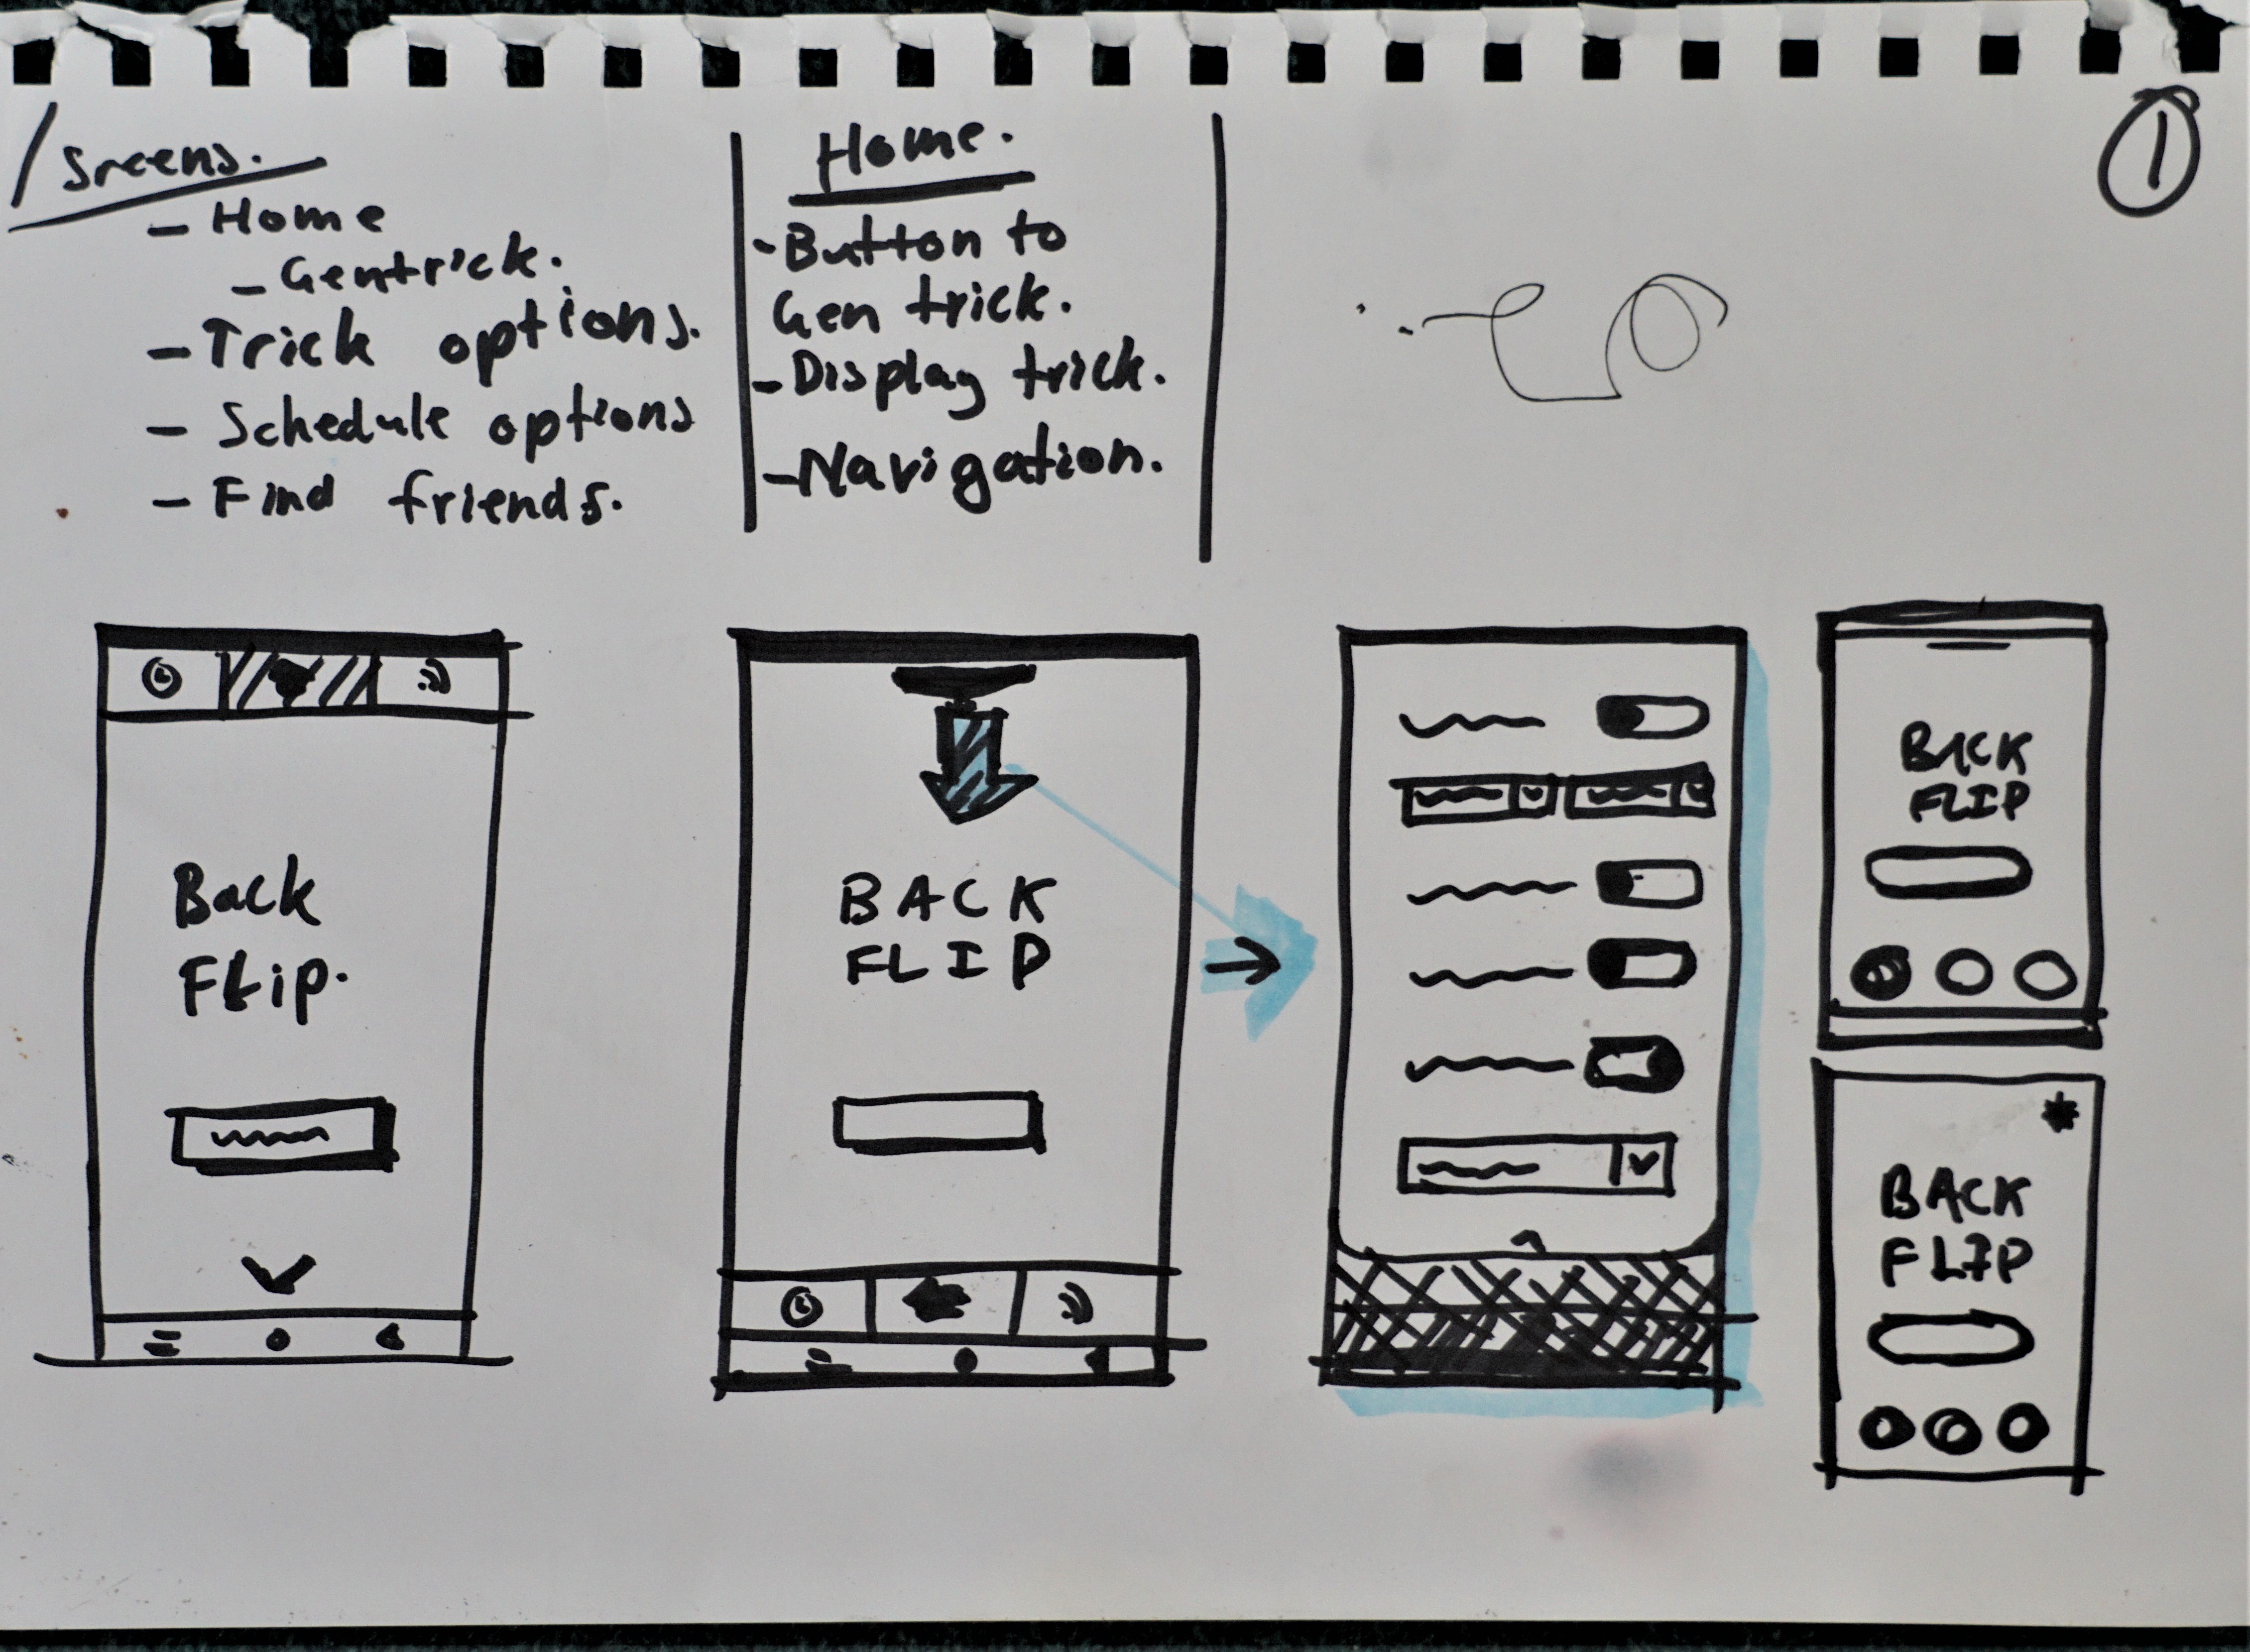 Sreens.
- Home
- Gentrick.
- Trick options.
- Schedule options
- Find friends.
Home.
- Button to
Gen trick.
- Display trick.
- Navigation.
1
Back
Flip.
BACK
FLIP
BACK
FLIP
BACK
FLIP